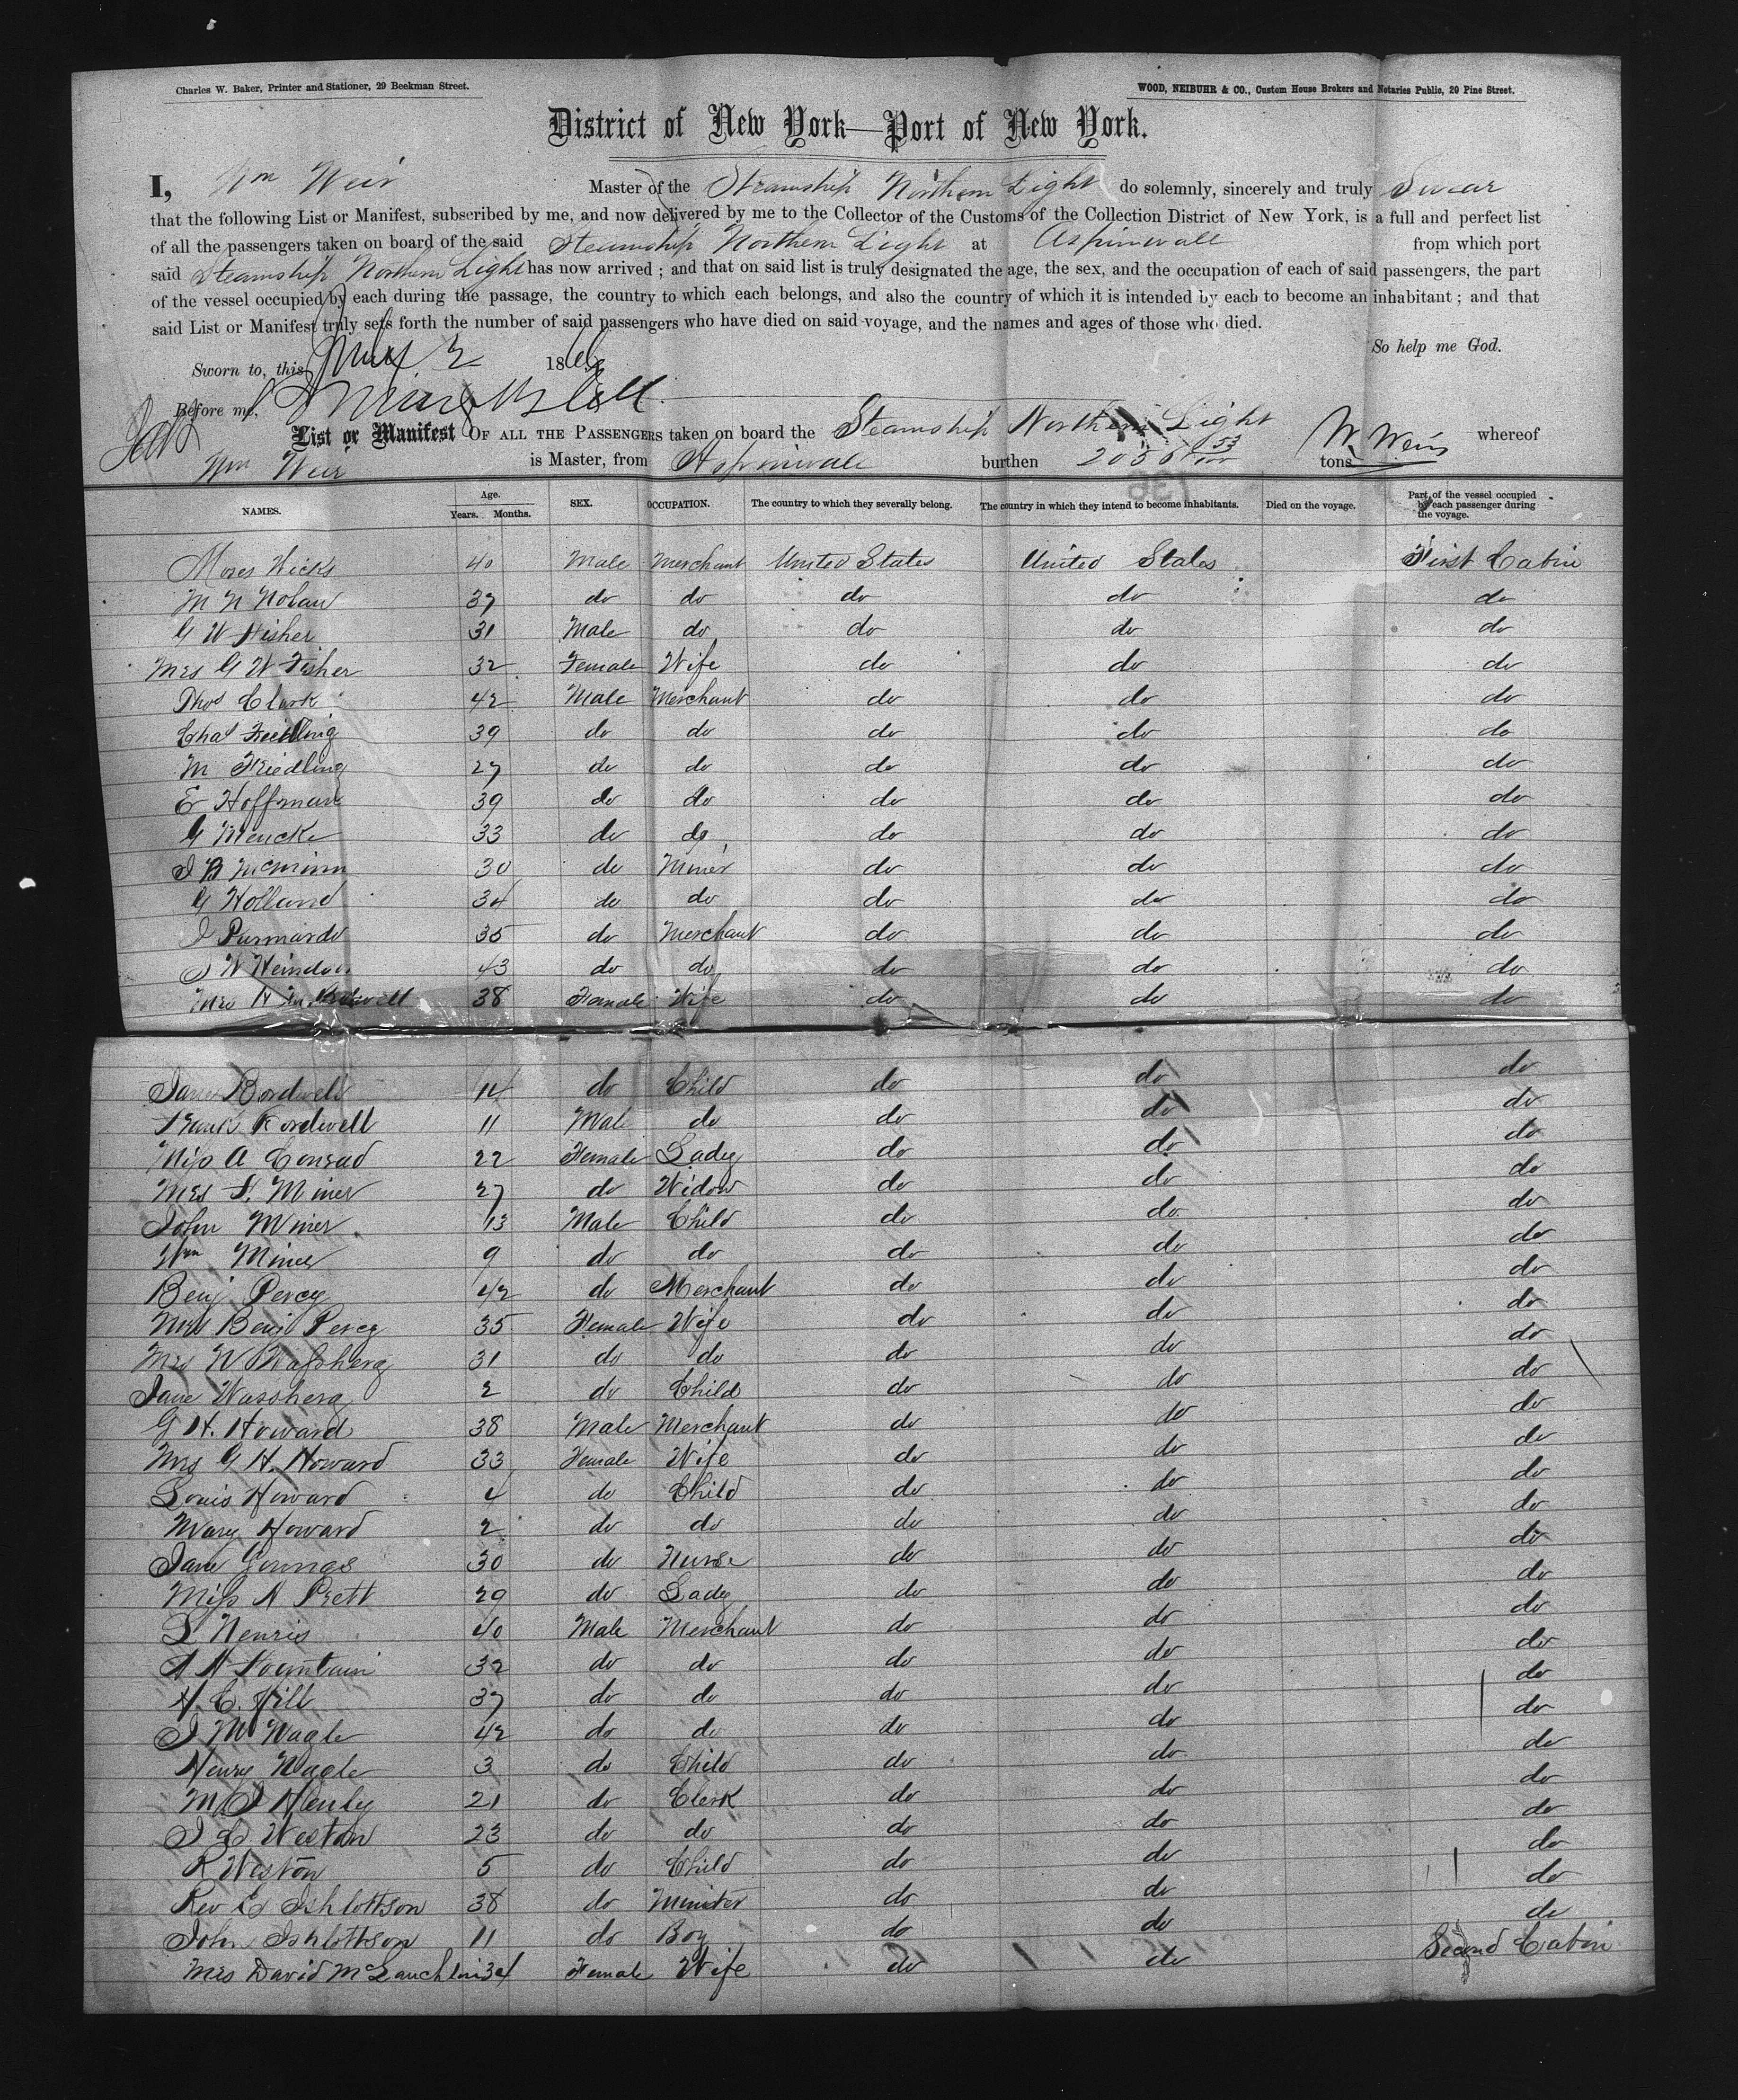 Charles W. Baker, Printer and Stationer, 29 Beekman Street.
WOOD, NEIBUHR & CO., Custom House Brokers and Notaries Public, 29 Pine Street.
District of New York—Port of New York.
I, Wm Weir Master of the Steamship Northern Light do solemnly, sincerely and truly Swear
that the following List or Manifest, subscribed by me, and now delivered by me to the Collector of the Customs of the Collection District of New York, is a full and perfect list
of all the passengers taken on board of the said Steamship Northern Light at Aspinwall from which port
said Steamship Northern Light has now arrived ; and that on said list is truly designated the age, the sex, and the occupation of each of said passengers, the part
of the vessel occupied by each during the passage, the country to which each belongs, and also the country of which it is intended by each to become an inhabitant ; and that
said List or Manifest truly sets forth the number of said passengers who have died on said voyage, and the names and ages of those who died.
So help me God.
Sworn to, this 2 18
Before me,
List or Manifest OF ALL THE PASSENGERS taken on board the Steamship Northern Light W. Weir whereof
Wm Weir is Master, from Aspinwall burthen tons
NAMES. Age. Years. Months. SEX. OCCUPATION. The country to which they severally belong. The country in which they intend to become inhabitants. Died on the voyage. Part of the vessel occupied by each passenger during the voyage.
Moses Wicks 40 Male Merchant United States United States First Cabin
M N Nolan 37 do do do do do
G W Fisher 31 Male do do do do
Mrs G W Fisher 32 Female Wife do do do
Thos Clark 42 Male Merchant do do do
Chas 39 do do do do do
M Friedling 27 do do do do do
E Hoffman 39 do do do do do
G Mencke 33 do do do do do
J B McMinn 30 do Miner do do do
G Holland 34 do do do do do
J 35 do Merchant do do do
J W 43 do do do do do
Mrs H 38 Female Wife do do do
Jane Bordwell 14 do Child do do do
Frank Bordwell 11 Male do do do do
Miss A Conrad 22 Female Lady do do do
Mrs S. Miner 27 do Widow do do do
John Miner 13 Male Child do do do
Wm Miner 9 do do do do do
Benj Percy 42 do Merchant do do do
Mrs Benj Percy 35 Female Wife do do do
Mrs W 31 do do do do do
Jane 2 do Child do do do
G H. Howard 38 Male Merchant do do do
Mrs G H. Howard 33 Female Wife do do do
Louis Howard 4 do Child do do do
Mary Howard 2 do do do do do
Jane 30 do Nurse do do do
Miss A Prett 29 do Lady do do do
L Henris 40 Male Merchant do do do
A A Fountain 32 do do do do do
H. C. Hill 37 do do do do do
J M Nagle 42 do do do do do
Henry Nagle 3 do Child do do do
M J Henly 21 do Clerk do do do
J L Weston 23 do do do do do
R Weston 5 do Child do do do
Rev E Ishlottson 38 do Minister do do do
John Ishlottson 11 do Boy do do do
Mrs David McLauchlin 34 Female Wife do do Second Cabin